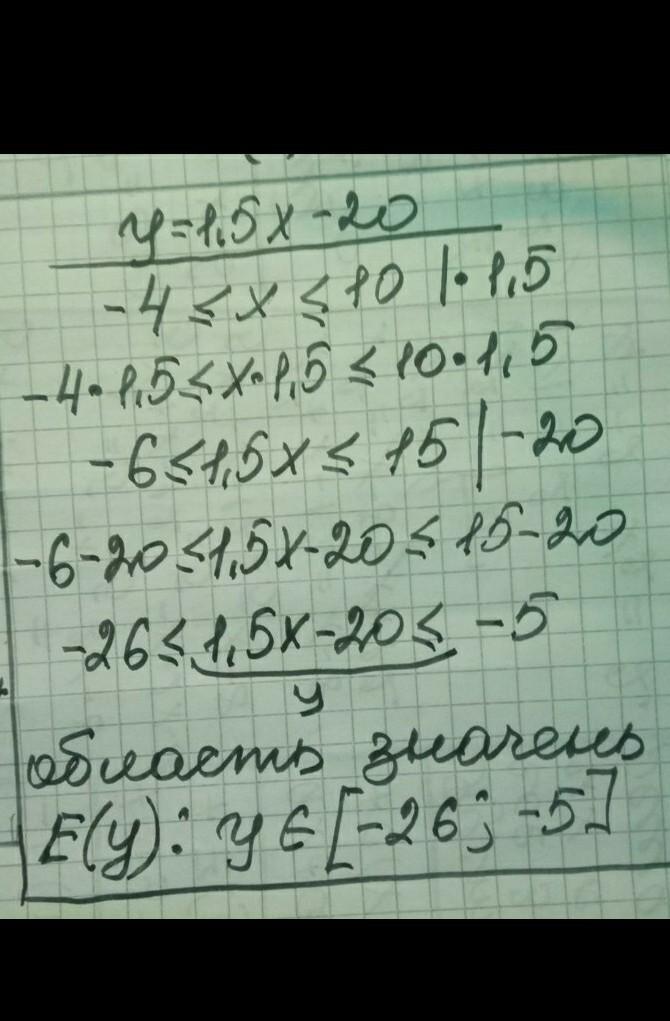 y=1,5x-20
-4 ≤ x ≤ 10 |·1,5
-4·1,5 ≤ x·1,5 ≤ 10·1,5
-6 ≤ 1,5x ≤ 15 | -20
-6-20 ≤ 1,5x-20 ≤ 15-20
-26 ≤ 1,5x-20 ≤ -5
y
область значень
E(y): y ∈ [-26; -5]